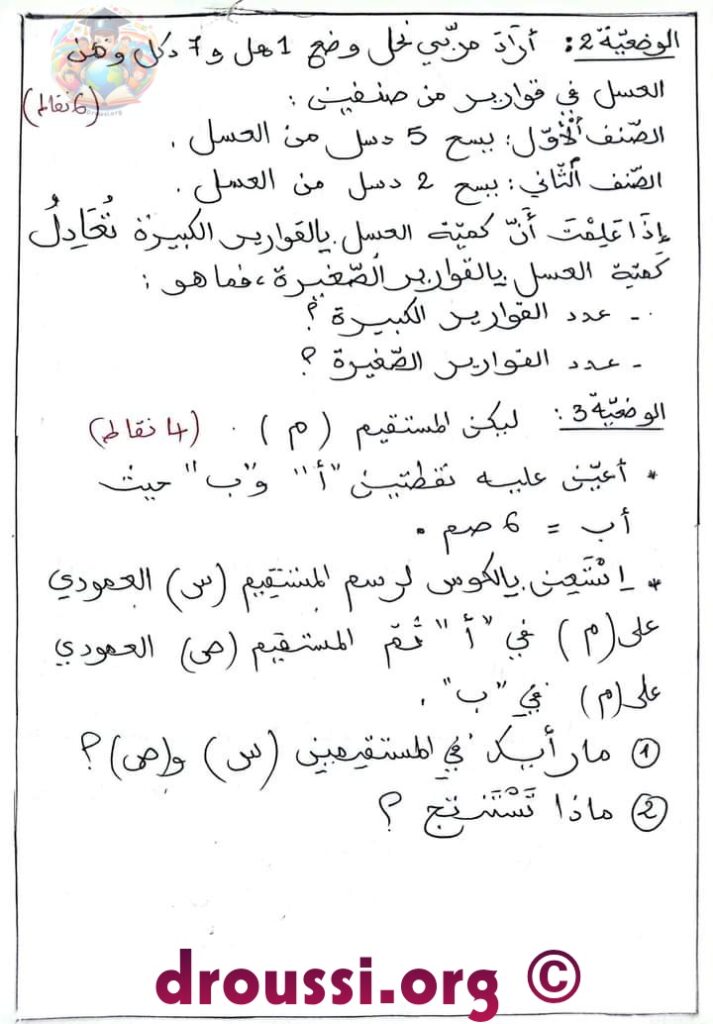 الوضعيّة 2: أَرَادَ مربّي نحل وضع 1 هل و 7 دكل من
العسل في قوارير من صنفين :
(6 نقاط)
Droussi.org
الصّنف الأوّل: يسع 5 دسل من العسل .
الصّنف الثّاني: يسع 2 دسل من العسل .
إِذَا عَلِمْتَ أَنّ كميّة العسل بالقوارير الكبيرة تُعَادِلُ
كَميّة العسل بالقوارير الصّغيرة، فما هو :
- عدد القوارير الكبيرة ؟
- عدد القوارير الصّغيرة ؟
الوضعيّة 3: ليكن المستقيم ( م ) . (4 نقاط)
* أعيّن عليه نقطتين "أ" و"ب" حيث
أب = 6 صم .
* اِسْتَعِن بالكوس لرسم المستقيم (س) العمودي
على (م) في "أ" ثُمّ المستقيم (ص) العمودي
على (م) في "ب" .
① ما رأيك في المستقيمين (س) و(ص) ؟
② ماذا تَسْتَنتج ؟
droussi.org ©